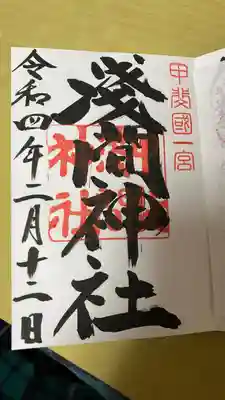 甲斐國一宮
淺間神社
令和四年二月十二日